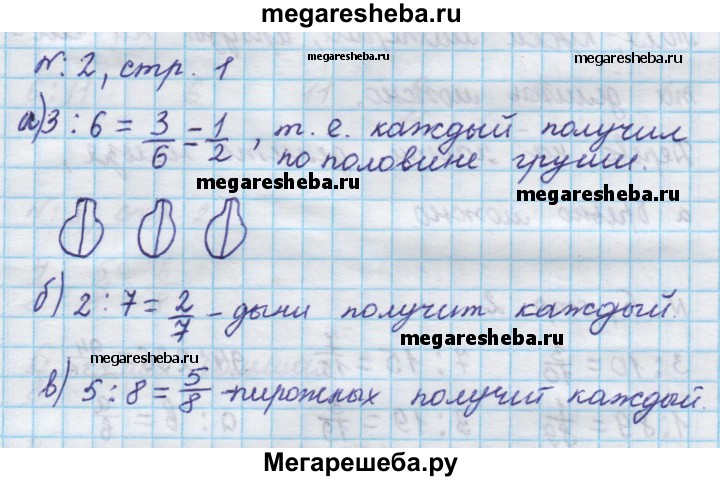 megaresheba.ru
№: 2, стр. 1
а) 3 : 6 = 3/6 = 1/2, т. е. каждый получил
по половине груши.
megaresheba.ru
megaresheba.ru
б) 2 : 7 = 2/7 – дыни получит каждый.
megaresheba.ru
megaresheba.ru
в) 5 : 8 = 5/8 – пирожных получит каждый.
Мегарешеба.ру